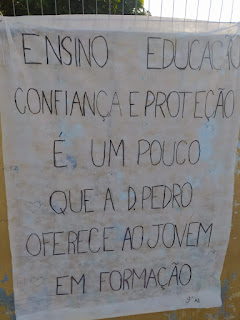 ENSINO EDUCAÇÃO
CONFIANÇA E PROTEÇÃO
É UM POUCO
QUE A D.PEDRO
OFERECE AO JOVEM
EM FORMAÇÃO